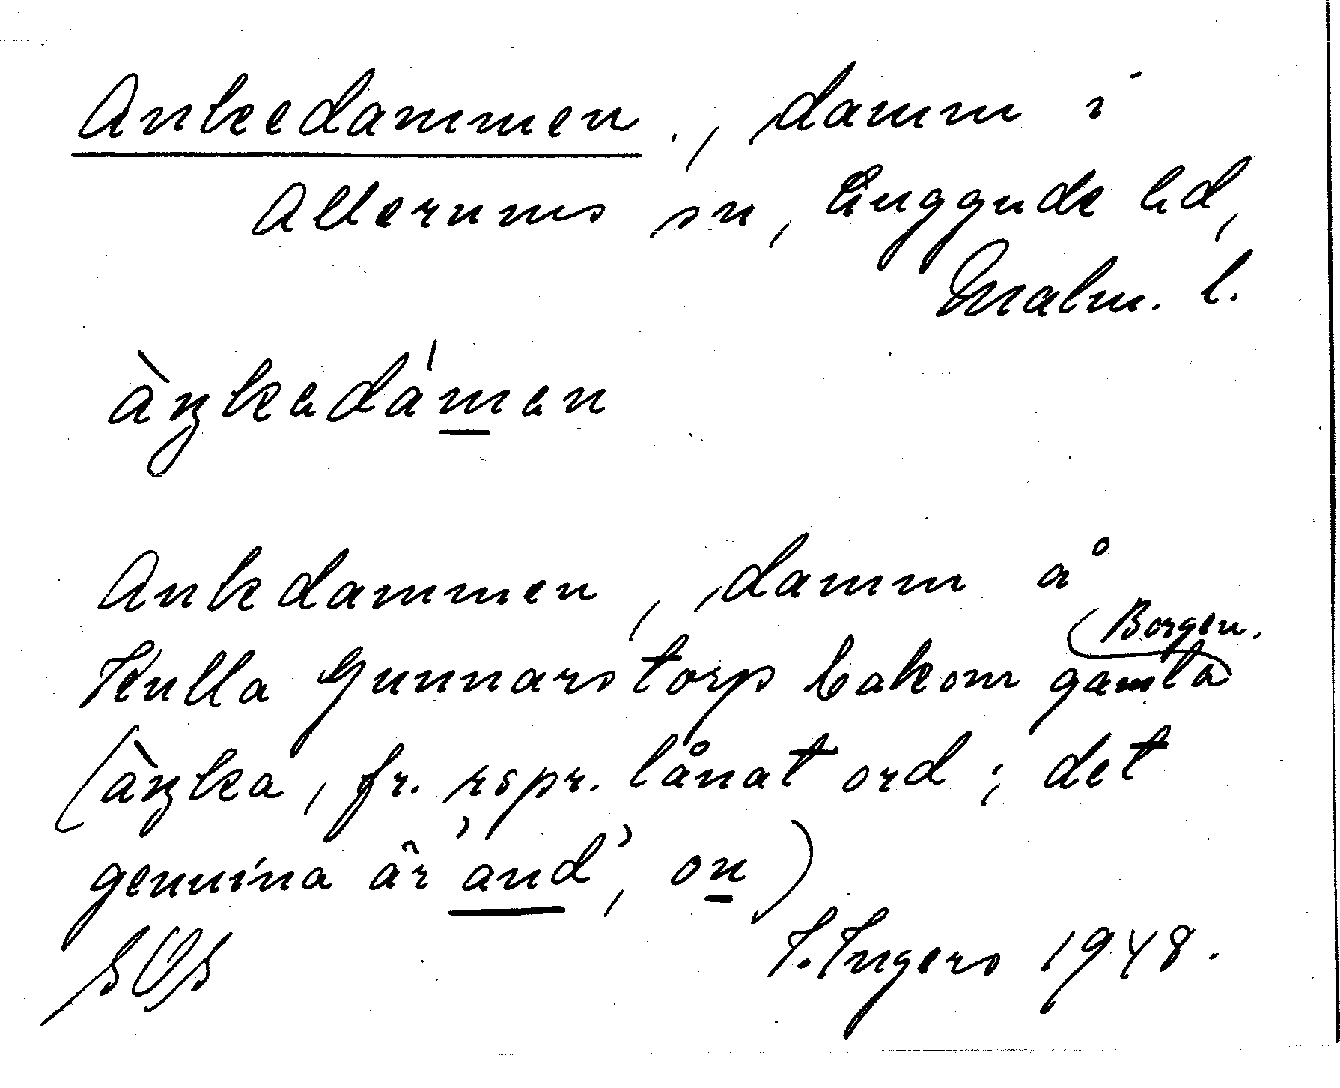 Ankedammen., damm i
Allerums sn, Luggude hd,
Malm. l.
àŋkedámen
Ankdammen, damm å
Kulla Gunnarstorp bakom gamla Borgen.
(àŋka, fr. rspr. lånat ord; det
genuina är 'and', on)
SOS
I. Ingers 1948.